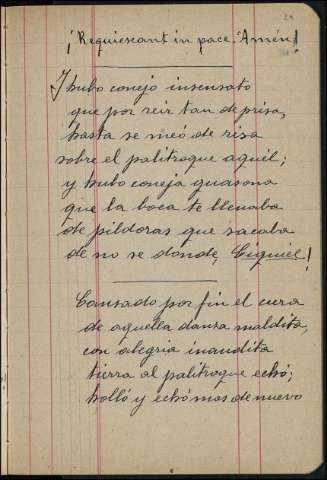 29
¡Requiescant in pace. Amén!
Y hubo conejo insensato
que por reir tan de prisa,
hasta se meó de risa
sobre el palitroque aquél;
y hubo coneja guasona
que la boca te llenaba
de píldoras que sacaba
de no se donde, Ezquiel!
Cansado por fin el cura
de aquella danza maldita,
con alegria inaudita
tierra al palitroque echó;
holló y echó mas de nuevo